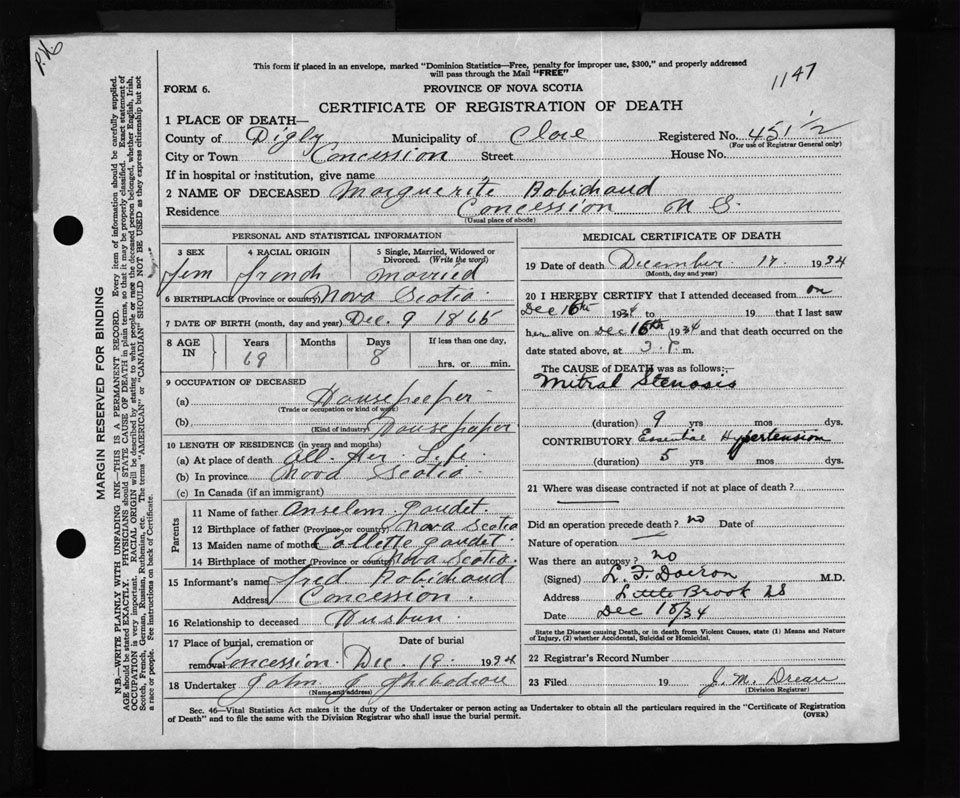 P.H.
This form if placed in an envelope, marked "Dominion Statistics—Free, penalty for improper use, $300," and properly addressed
will pass through the Mail "FREE"
1147
FORM 6.
PROVINCE OF NOVA SCOTIA
CERTIFICATE OF REGISTRATION OF DEATH
1 PLACE OF DEATH—
County of Digby Municipality of Clare Registered No. 451 1/2
(For use of Registrar General only)
City or Town Concession Street House No.
If in hospital or institution, give name
2 NAME OF DECEASED Marguerite Robichaud
Residence Concession N S.
(Usual place of abode)
PERSONAL AND STATISTICAL INFORMATION
3 SEX 4 RACIAL ORIGIN 5 Single, Married, Widowed or
Divorced. (Write the word)
Fem French Married
6 BIRTHPLACE (Province or country) Nova Scotia
7 DATE OF BIRTH (month, day and year) Dec. 9 1865
8 AGE IN Years Months Days If less than one day,
69 8 hrs. or min.
9 OCCUPATION OF DECEASED
(a) Housekeeper
(Trade or occupation or kind of work)
(b) Housekeeper
(Kind of industry)
10 LENGTH OF RESIDENCE (in years and months)
(a) At place of death All Her Life.
(b) In province Nova Scotia
(c) In Canada (if an immigrant)
Parents
11 Name of father Anselem Gaudet.
12 Birthplace of father (Province or country) Nova Scotia
13 Maiden name of mother Collette Gaudet.
14 Birthplace of mother (Province or country) Nova Scotia.
15 Informant's name Fred Robichaud
Address Concession.
16 Relationship to deceased Husban
17 Place of burial, cremation or Date of burial
removal Concession. Dec. 19. 1934
18 Undertaker John J Thibodeau
(Name and address)
MEDICAL CERTIFICATE OF DEATH
19 Date of death December 17. 1934
(Month, day and year)
20 I HEREBY CERTIFY that I attended deceased from on
Dec 16th 1934 to 19 that I last saw
her alive on Dec 16th 1934 and that death occurred on the
date stated above, at 3. P. m.
The CAUSE OF DEATH was as follows:—
Mitral Stenosis
(duration) 9 yrs mos dys.
CONTRIBUTORY Essential Hypertension
(duration) 5 yrs mos dys.
21 Where was disease contracted if not at place of death?
Did an operation precede death? no Date of
Nature of operation
Was there an autopsy? no
(Signed) L. F. Doiron M.D.
Address Little Brook NS
Date Dec 18/34
State the Disease causing Death, or in death from Violent Causes, state (1) Means and Nature
of Injury, (2) whether Accidental, Suicidal or Homicidal.
22 Registrar's Record Number
23 Filed 19 J. M. Dreau
(Division Registrar)
Sec. 46—Vital Statistics Act makes it the duty of the Undertaker or person acting as Undertaker to obtain all the particulars required in the "Certificate of Registration
of Death" and to file the same with the Division Registrar who shall issue the burial permit.
(OVER)
MARGIN RESERVED FOR BINDING
N.B.—WRITE PLAINLY WITH UNFADING INK—THIS IS A PERMANENT RECORD. Every item of information should be carefully supplied.
AGE should be stated EXACTLY. PHYSICIANS should STATE CAUSE OF DEATH in plain terms, so that it may be properly classified. Exact statement of
OCCUPATION is very important. RACIAL ORIGIN will be described by stating to what people or race the deceased person belonged, whether English, Irish,
Scotch, French, German, Russian, Ruthenian, etc. The terms "AMERICAN" or "CANADIAN" SHOULD NOT BE USED as they express citizenship but not
a race or people. See instructions on back of Certificate.